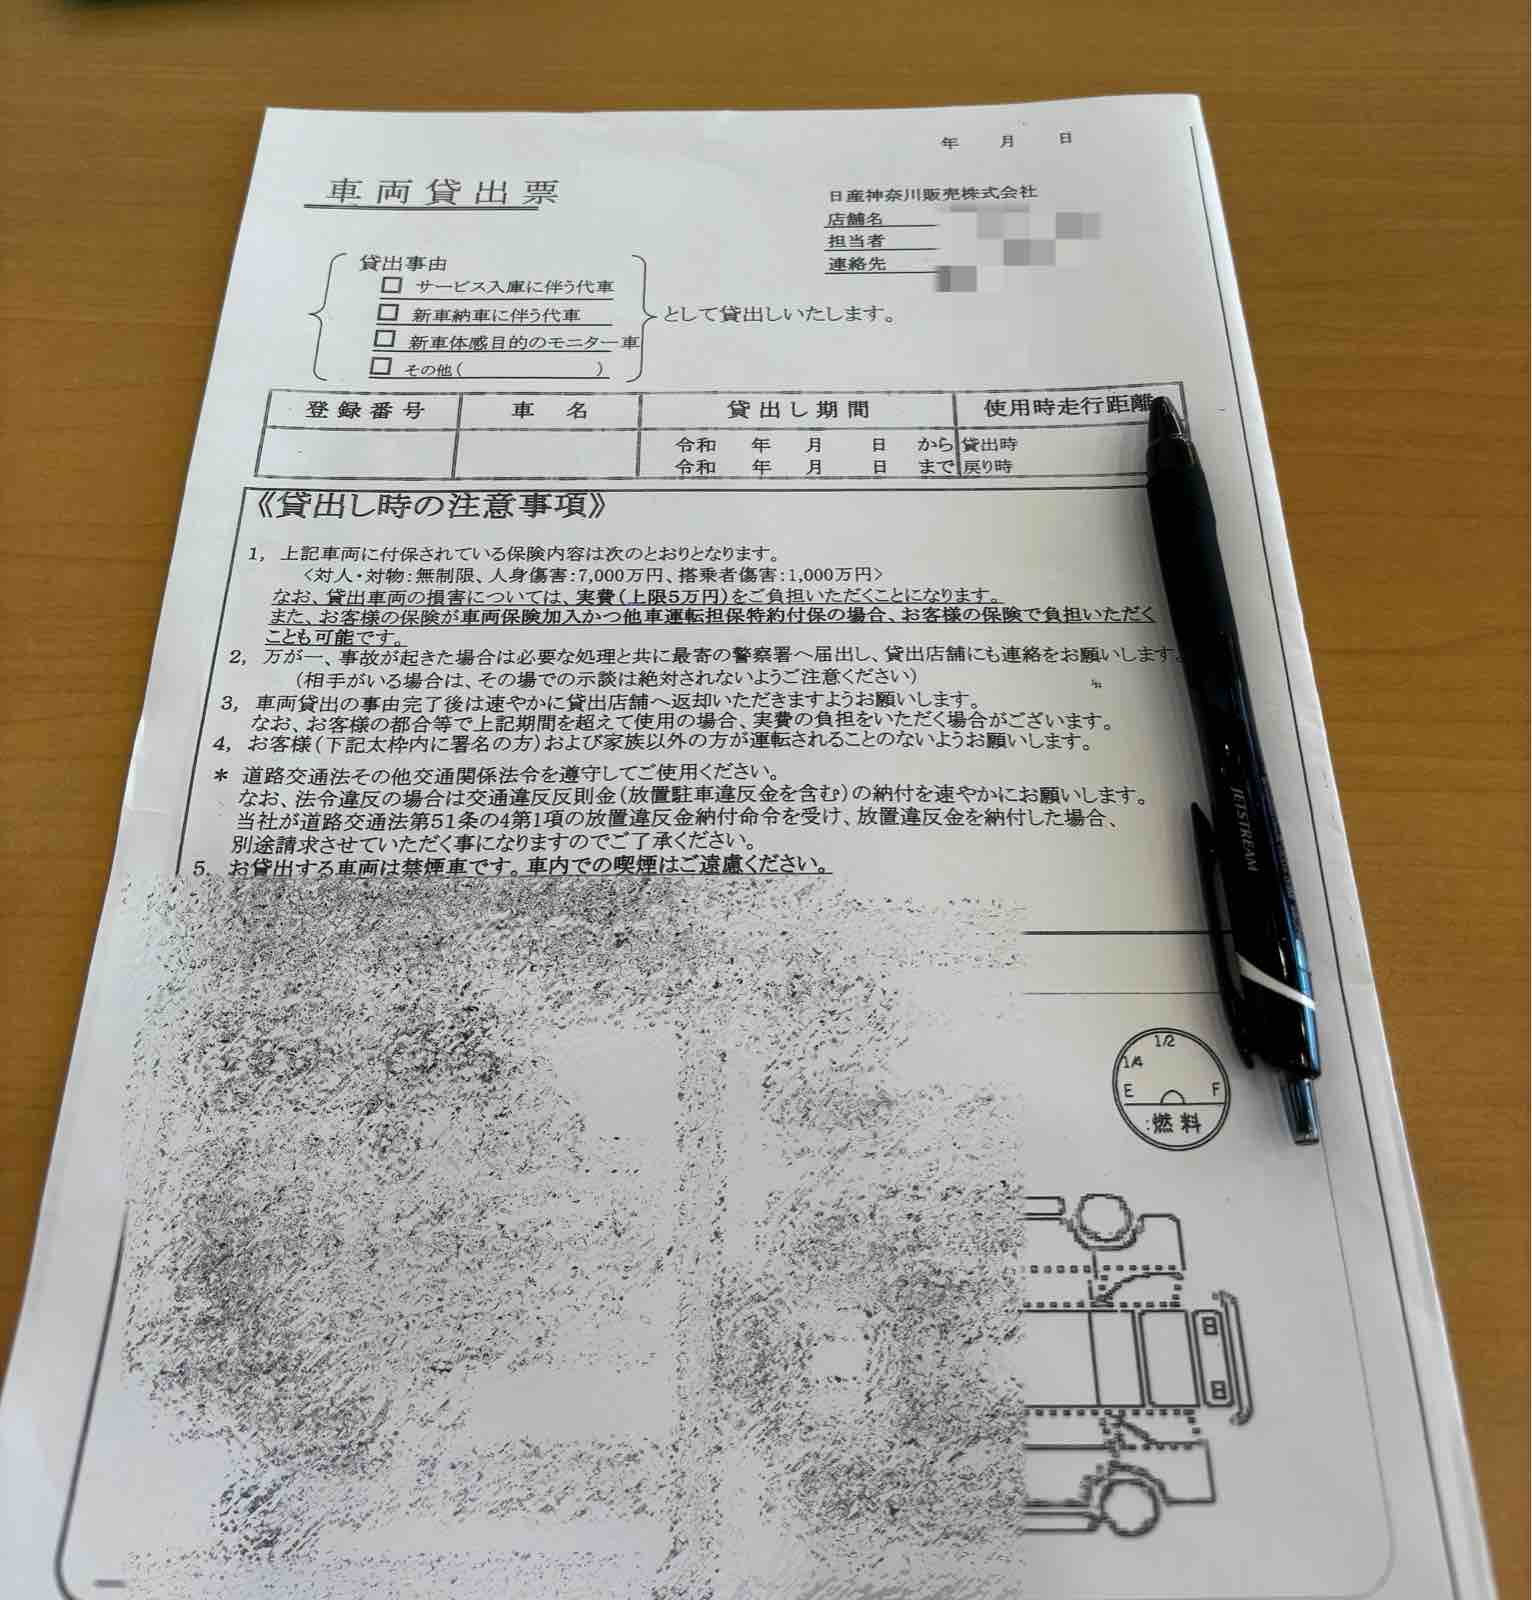 年 月 日
車両貸出票
日産神奈川販売株式会社
店舗名
担当者
連絡先
貸出事由
□ サービス入庫に伴う代車
□ 新車納車に伴う代車
□ 新車体感目的のモニター車
□ その他( )
として貸出しいたします。
登録番号 車名 貸出し期間 使用時走行距離
令和 年 月 日 から 貸出時
令和 年 月 日 まで 戻り時
《貸出し時の注意事項》
1, 上記車両に付保されている保険内容は次のとおりとなります。
<対人・対物:無制限、人身傷害:7,000万円、搭乗者傷害:1,000万円>
なお、貸出車両の損害については、実費(上限5万円)をご負担いただくことになります。
また、お客様の保険が車両保険加入かつ他車運転担保特約付保の場合、お客様の保険で負担いただく
ことも可能です。
2, 万が一、事故が起きた場合は必要な処理と共に最寄の警察署へ届出し、貸出店舗にも連絡をお願いします。
(相手がいる場合は、その場での示談は絶対されないようご注意ください)
3, 車両貸出の事由完了後は速やかに貸出店舗へ返却いただきますようお願いします。
なお、お客様の都合等で上記期間を超えて使用の場合、実費の負担をいただく場合がございます。
4, お客様(下記太枠内に署名の方)および家族以外の方が運転されることのないようお願いします。
* 道路交通法その他交通関係法令を遵守してご使用ください。
なお、法令違反の場合は交通違反反則金(放置駐車違反金を含む)の納付を速やかにお願いします。
当社が道路交通法第51条の4第1項の放置違反金納付命令を受け、放置違反金を納付した場合、
別途請求させていただく事になりますのでご了承ください。
5, お貸出する車両は禁煙車です。車内での喫煙はご遠慮ください。
JETSTREAM
1/2
1/4
E F
燃料